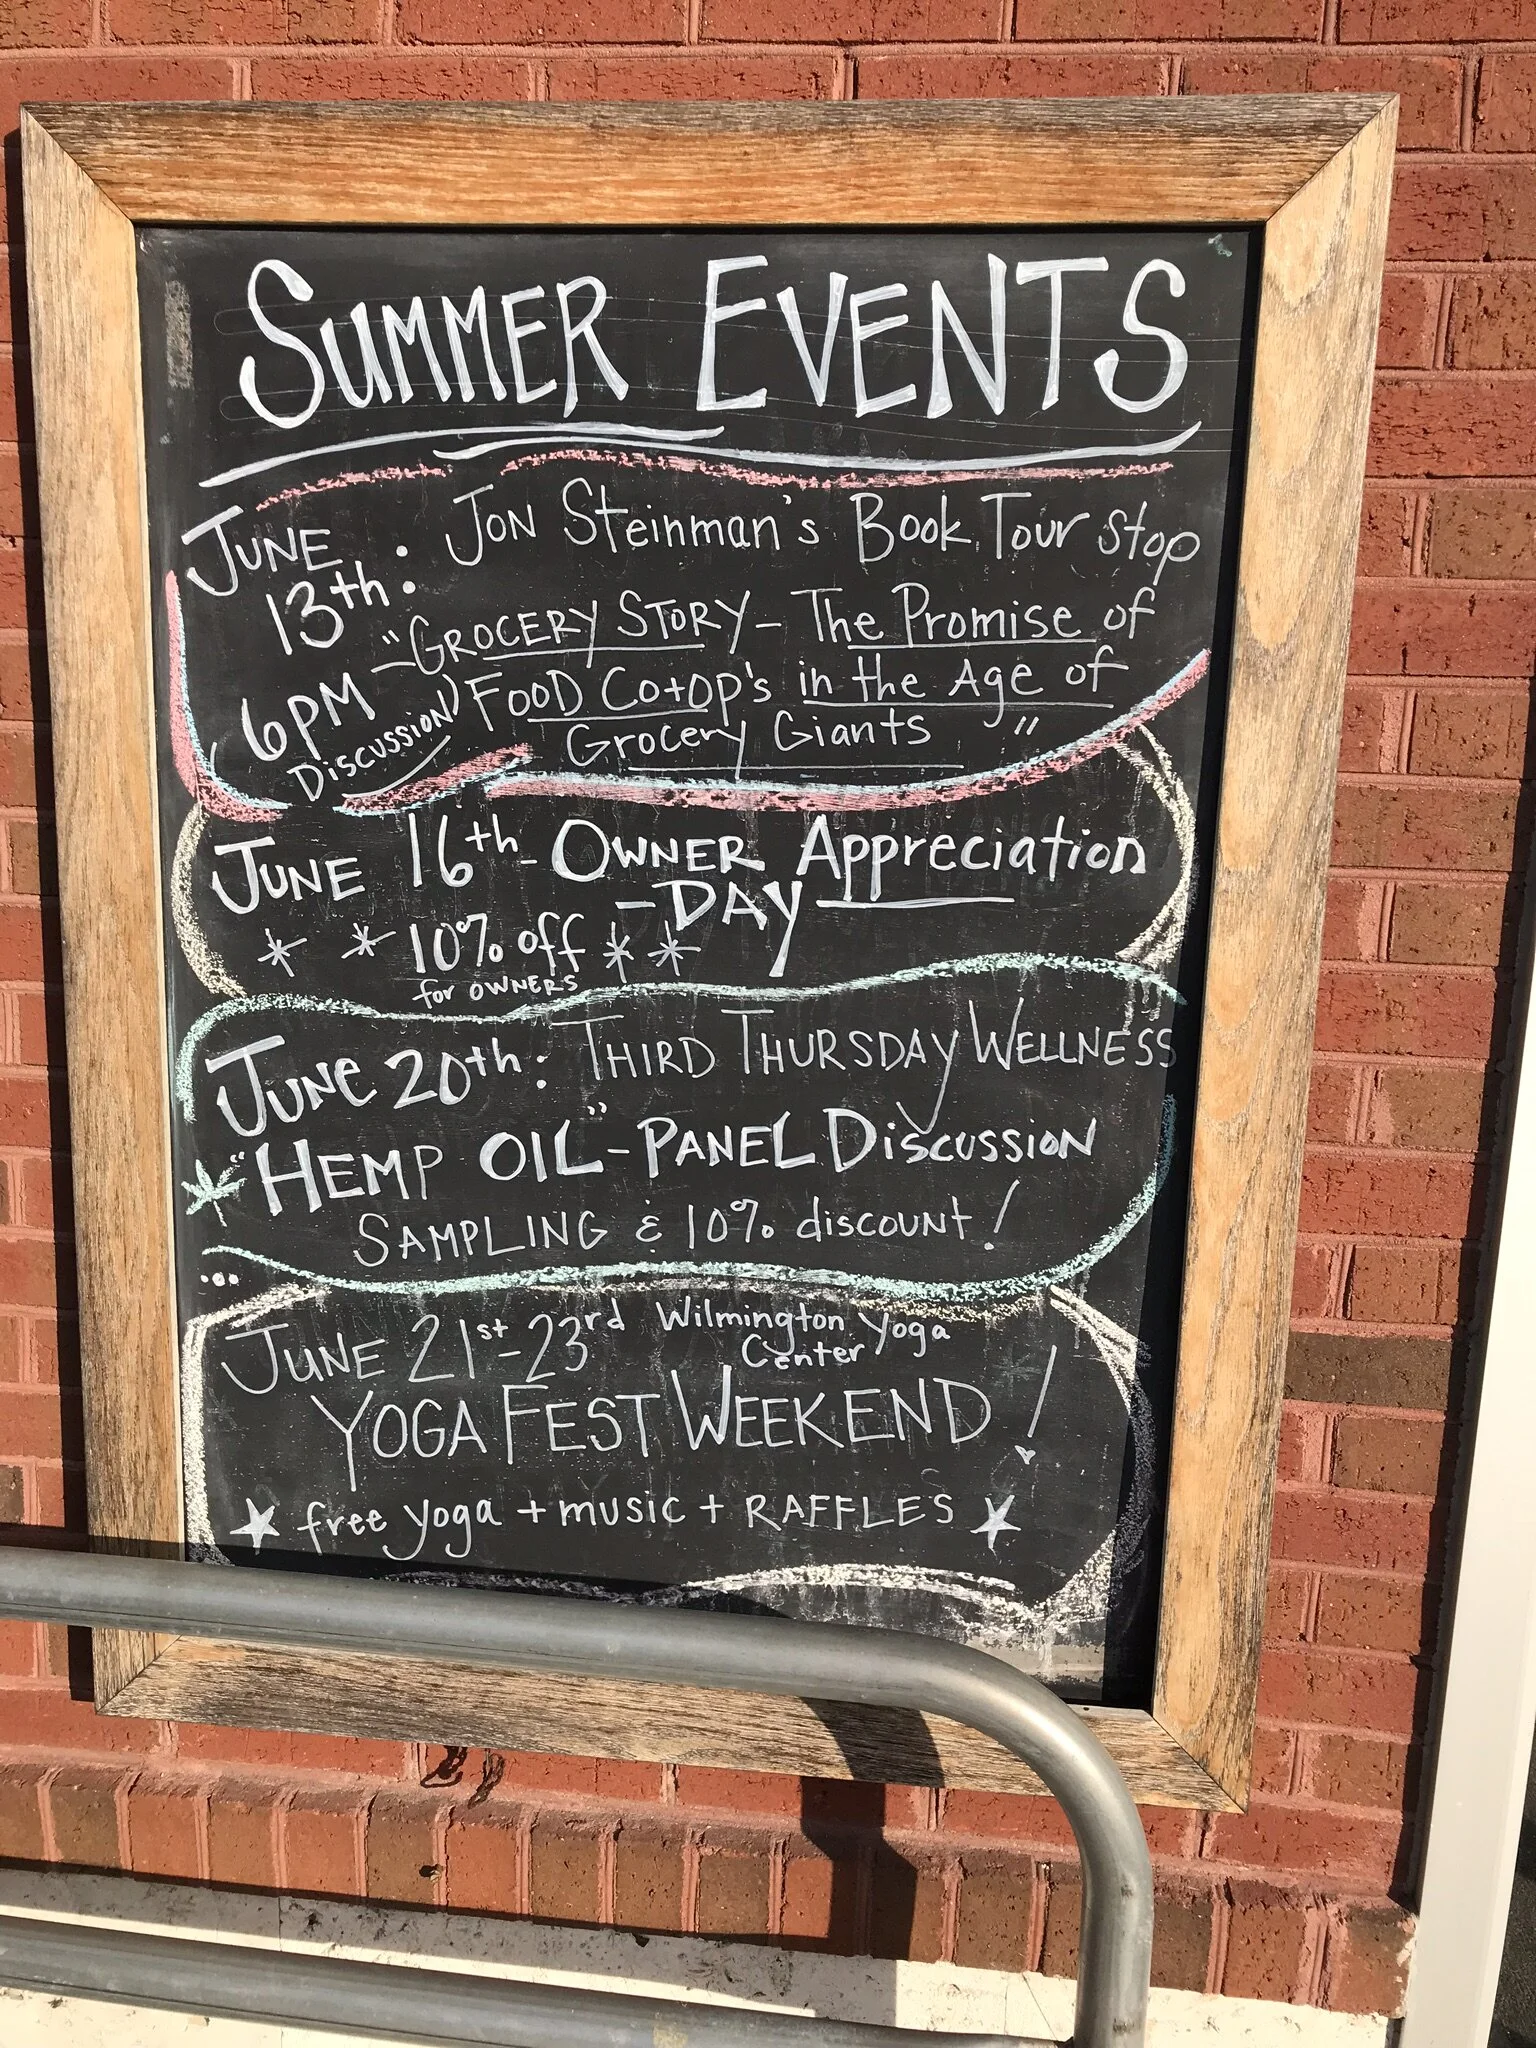 SUMMER EVENTS
JUNE 13th: JON Steinman's Book Tour Stop
6PM DISCUSSION
"GROCERY STORY - The Promise of
FOOD Co+op's in the Age of
Grocery Giants"
JUNE 16th - OWNER Appreciation
- DAY
* * 10% off * *
for OWNERS
JUNE 20th: THIRD THURSDAY WELLNESS
"HEMP OIL" - PANEL DISCUSSION
SAMPLING & 10% discount!
...
JUNE 21st - 23rd Wilmington Yoga
Center
YOGA FEST WEEKEND!
★ free yoga + music + RAFFLES ★